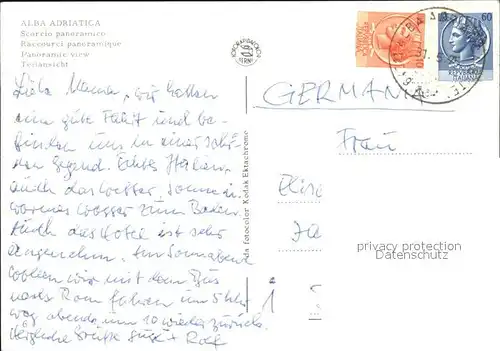 ALBA ADRIATICA
Scorcio panoramico
Raccourci panoramique
Panoramic view
Teilansicht
Liebe Mama, wir hatten
eine gute Fahrt und be-
finden uns in einer schö-
nen Gegend. Echtes Italien,
auch das Wetter, Sonne u.
warmes Wasser zum Baden.
Auch das Hotel ist sehr
angenehm. Am Sonnabend
wollen wir mit dem Bus
nach Rom fahren um 5 Uhr
weg abends um 10 wieder zurück.
Herzliche Grüße + Rolf
da fotocolor Kodak Ektachrome
60
GERMANIA
Frau
Elise
persönliche Angaben
Datenschutz